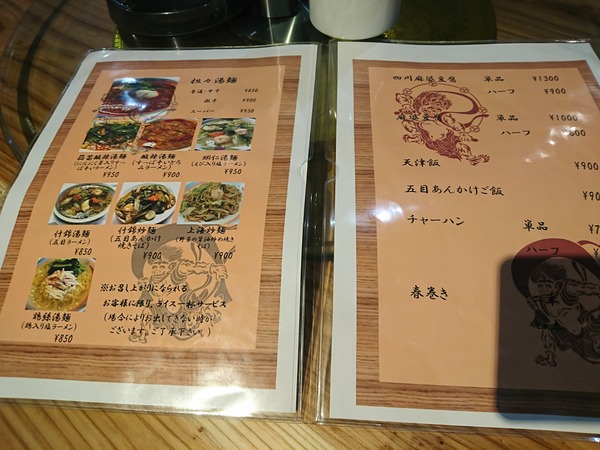 担々湯麺
普通・中辛 ¥850
激辛 ¥900
スーパー ¥950
蒜苗酸辣湯麺
(にんにく芽入りすっ
ぱ辛いそば)
¥950
酸辣湯麺
(すーぱ辛いとろ
みラーメン)
¥900
蝦仁湯麺
(えび入り塩ラーメン)
¥950
什錦湯麺
(五目ラーメン)
¥850
什錦炒麺
(五目あんかけ
焼きそば)
¥900
上海炒麺
(野菜の醤油炒め焼き
そば)
¥900
鶏絲湯麺
(鶏入り塩ラーメン)
¥850
※お召し上がりになられる
お客様に限り、ライス一杯サービス
(場合によりお出しできない時が
ございます。ご了承下さい。)
四川麻婆豆腐 単品 ¥1300
ハーフ ¥900
麻婆豆腐 単品 ¥1000
ハーフ ¥800
天津飯 ¥900
五目あんかけご飯 ¥900
チャーハン 単品 ¥7
ハーフ
春巻き